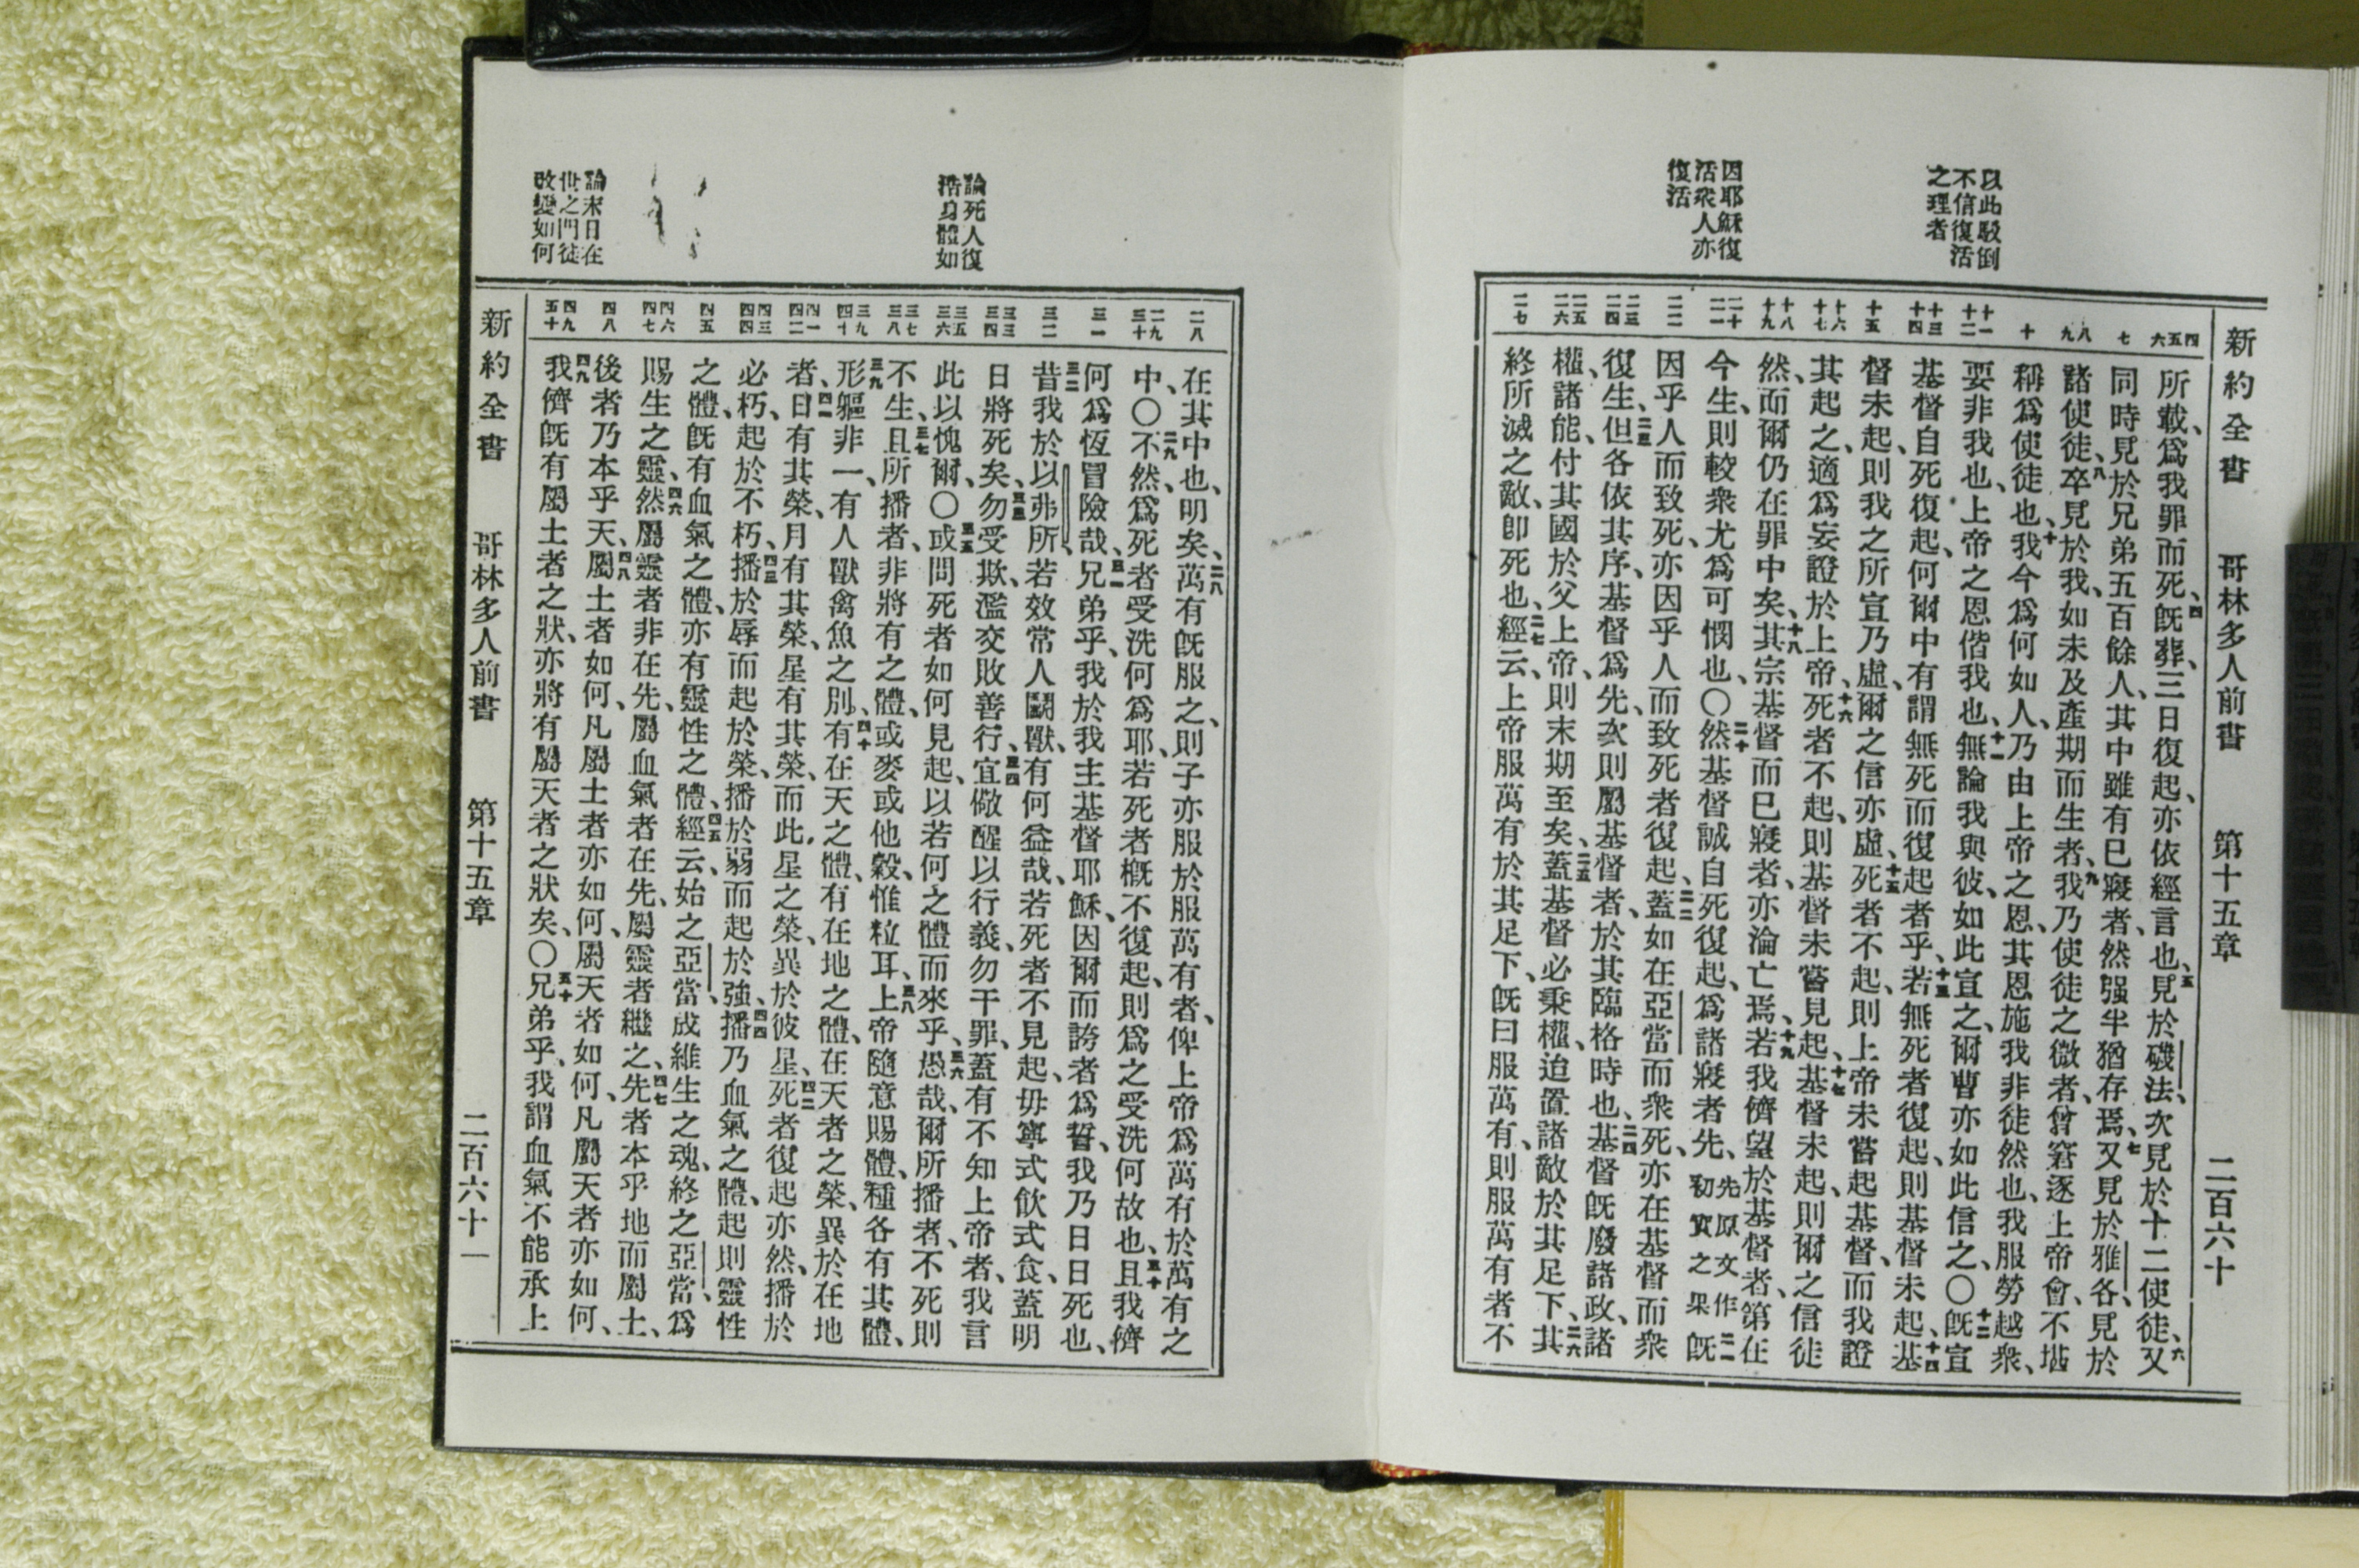 以此駁倒
不信復活
之理者
因耶穌復
活衆人亦
復活
新約全書 哥林多人前書 第十五章 二百六十
四
五
六
七
八
九
十
十一
十二
十三
十四
十五
十六
十七
十八
十九
二十
二一
二二
二三
二四
二五
二六
二七
所載、爲我罪而死、四旣葬、三日復起、亦依經言也、五見於磯法、次見於十二使徒、六又
同時見於兄弟五百餘人、其中雖有已寢者、然强半猶存焉、七又見於雅各、見於
諸使徒、八卒見於我、如未及產期而生者、九我乃使徒之微者、曾窘逐上帝會、不堪
稱爲使徒也、十我今爲何如人、乃由上帝之恩、其恩施我非徒然也、我服勞越衆、
要非我也、上帝之恩偕我也、十一無論我與彼、如此宣之、爾曹亦如此信之、〇十二旣宣
基督自死復起、何爾中有謂無死而復起者乎、十三若無死者復起、則基督未起、十四基
督未起、則我之所宣乃虛、爾之信亦虛、十五死者不起、則上帝未嘗起基督、而我證
其起之、適爲妄證於上帝、十六死者不起、則基督未嘗見起、十七基督未起、則爾之信徒
然、而爾仍在罪中矣、十八其宗基督而已寢者、亦淪亡焉、十九若我儕望於基督者、第在
今生、則較衆尤爲可憫也、〇二十然基督誠自死復起、爲諸寢者先、先原文作初實之果二一旣
因乎人而致死、亦因乎人而致死者復起、二二蓋如在亞當而衆死、亦在基督而衆
復生、二三但各依其序、基督爲先、次則屬基督者、於其臨格時也、二四基督旣廢諸政、諸
權、諸能、付其國於父上帝、則末期至矣、二五蓋基督必秉權、迨置諸敵於其足下、二六其
終所滅之敵、卽死也、二七經云、上帝服萬有於其足下、旣曰服萬有、則服萬有者不
論死人復
活身體如
論末日在
世之門徒
改變如何
二八
二九
三十
三一
三二
三三
三四
三五
三六
三七
三八
三九
四十
四一
四二
四三
四四
四五
四六
四七
四八
四九
五十
在其中也、明矣、二八萬有旣服之、則子亦服於服萬有者、俾上帝爲萬有於萬有之
中、〇二九不然、爲死者受洗何爲耶、若死者概不復起、則爲之受洗何故也、三十且我儕
何爲恆冒險哉、三一兄弟乎、我於我主基督耶穌、因爾而誇者爲誓、我乃日日死也、
三二昔我於以弗所、若效常人鬭獸、有何益哉、若死者不見起、毋寧式飮式食、蓋明
日將死矣、三三勿受欺、濫交敗善行、三四宜儆醒以行義、勿干罪、蓋有不知上帝者、我言
此以愧爾、〇三五或問死者如何見起、以若何之體而來乎、三六愚哉、爾所播者、不死則
不生、三七且所播者、非將有之體、或麥或他穀、惟粒耳、三八上帝隨意賜體、種各有其體、
三九形軀非一、有人獸禽魚之別、四十有在天之體、有在地之體、在天者之榮、異於在地
者、四一日有其榮、月有其榮、星有其榮、而此星之榮、異於彼星、四二死者復起亦然、播於
必朽、起於不朽、四三播於辱而起於榮、播於弱而起於強、四四播乃血氣之體、起則靈性
之體、旣有血氣之體、亦有靈性之體、四五經云、始之亞當、成維生之魂、終之亞當、爲
賜生之靈、四六然屬靈者非在先、屬血氣者在先、屬靈者繼之、四七先者本乎地而屬土、
後者乃本乎天、四八屬土者如何、凡屬土者亦如何、屬天者如何、凡屬天者亦如何、
四九我儕旣有屬土者之狀、亦將有屬天者之狀矣、〇五十兄弟乎、我謂血氣不能承上
新約全書 哥林多人前書 第十五章 二百六十一